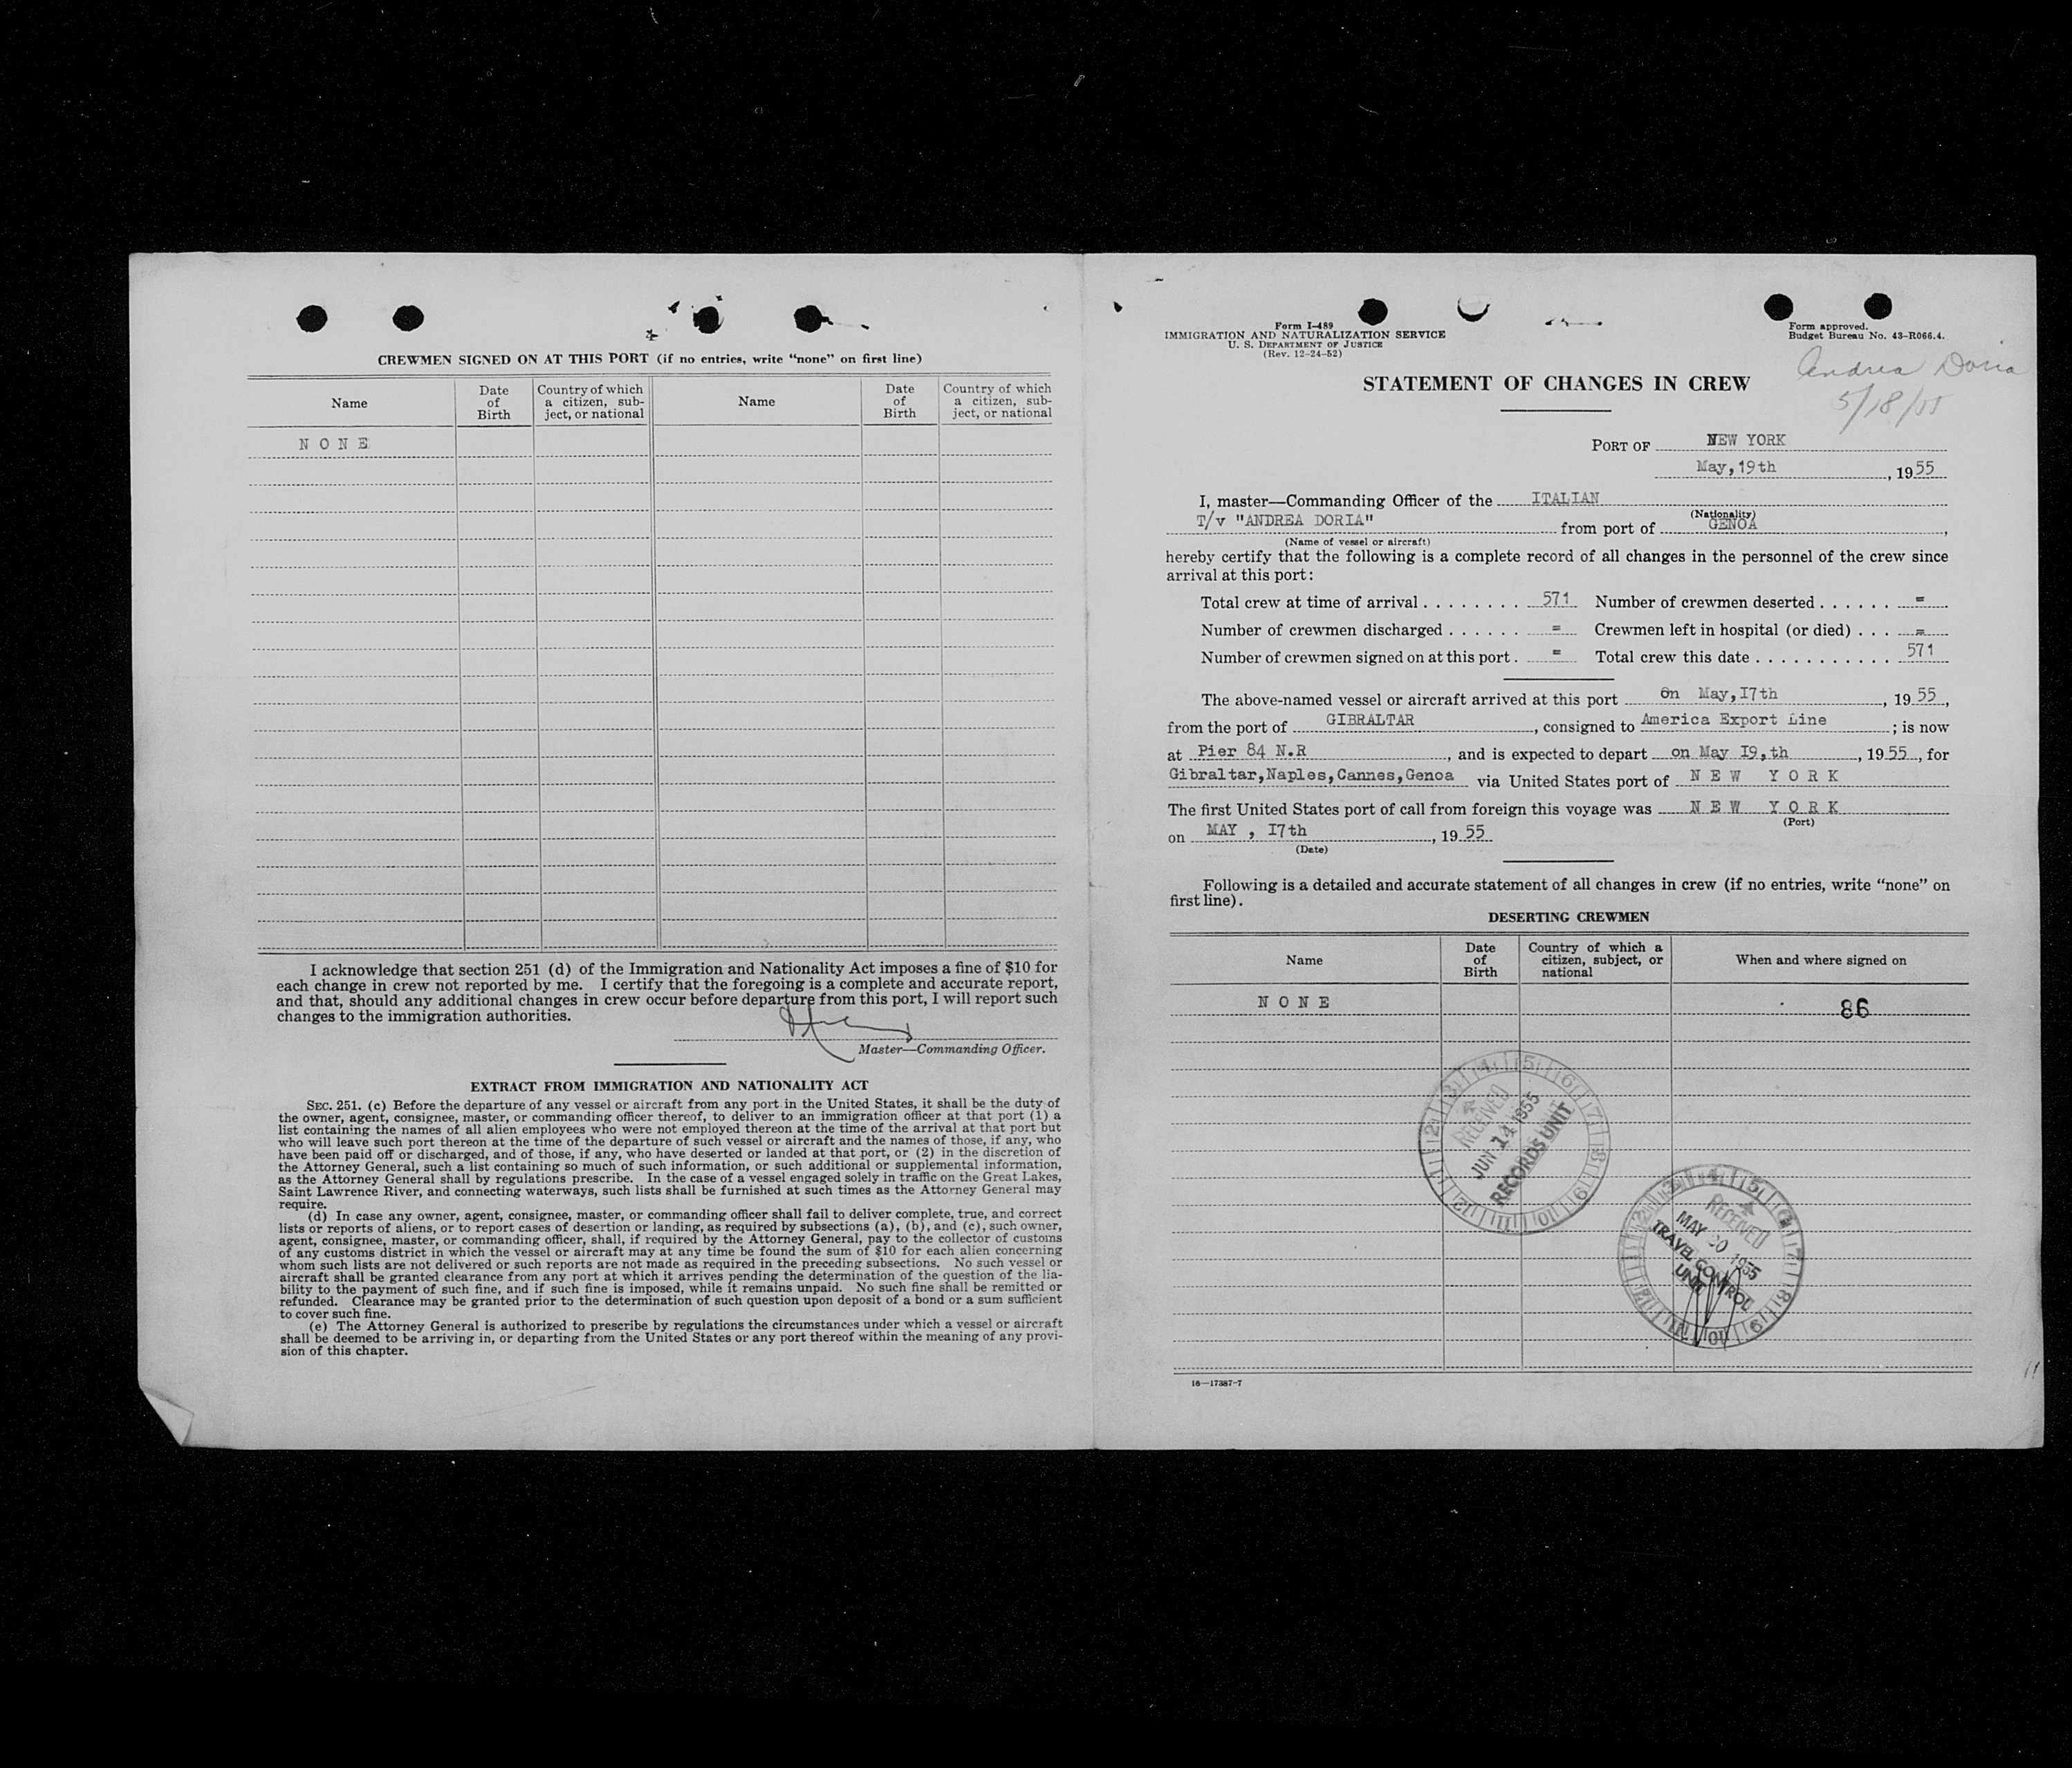 CREWMEN SIGNED ON AT THIS PORT (if no entries, write “none” on first line)
Name
Date of Birth
Country of which a citizen, sub-ject, or national
Name
Date of Birth
Country of which a citizen, sub-ject, or national
N O N E
I acknowledge that section 251 (d) of the Immigration and Nationality Act imposes a fine of $10 for
each change in crew not reported by me. I certify that the foregoing is a complete and accurate report,
and that, should any additional changes in crew occur before departure from this port, I will report such
changes to the immigration authorities.
Master—Commanding Officer.
EXTRACT FROM IMMIGRATION AND NATIONALITY ACT
SEC. 251. (c) Before the departure of any vessel or aircraft from any port in the United States, it shall be the duty of
the owner, agent, consignee, master, or commanding officer thereof, to deliver to an immigration officer at that port (1) a
list containing the names of all alien employees who were not employed thereon at the time of the arrival at that port but
who will leave such port thereon at the time of the departure of such vessel or aircraft and the names of those, if any, who
have been paid off or discharged, and of those, if any, who have deserted or landed at that port, or (2) in the discretion of
the Attorney General, such a list containing so much of such information, or such additional or supplemental information,
as the Attorney General shall by regulations prescribe. In the case of a vessel engaged solely in traffic on the Great Lakes,
Saint Lawrence River, and connecting waterways, such lists shall be furnished at such times as the Attorney General may
require.
(d) In case any owner, agent, consignee, master, or commanding officer shall fail to deliver complete, true, and correct
lists or reports of aliens, or to report cases of desertion or landing, as required by subsections (a), (b), and (c), such owner,
agent, consignee, master, or commanding officer, shall, if required by the Attorney General, pay to the collector of customs
of any customs district in which the vessel or aircraft may at any time be found the sum of $10 for each alien concerning
whom such lists are not delivered or such reports are not made as required in the preceding subsections. No such vessel or
aircraft shall be granted clearance from any port at which it arrives pending the determination of the question of the lia-
bility to the payment of such fine, and if such fine is imposed, while it remains unpaid. No such fine shall be remitted or
refunded. Clearance may be granted prior to the determination of such question upon deposit of a bond or a sum sufficient
to cover such fine.
(e) The Attorney General is authorized to prescribe by regulations the circumstances under which a vessel or aircraft
shall be deemed to be arriving in, or departing from the United States or any port thereof within the meaning of any provi-
sion of this chapter.
Form I-489
IMMIGRATION AND NATURALIZATION SERVICE
U. S. DEPARTMENT OF JUSTICE
(Rev. 12-24-52)
Form approved.
Budget Bureau No. 43-R066.4.
Andrea Doria
5/18/55
STATEMENT OF CHANGES IN CREW
PORT OF NEW YORK
May,19th, 1955
I, master—Commanding Officer of the ITALIAN
(Nationality)
T/v "ANDREA DORIA" from port of GENOA,
(Name of vessel or aircraft)
hereby certify that the following is a complete record of all changes in the personnel of the crew since
arrival at this port:
Total crew at time of arrival . . . . . . . . 571 Number of crewmen deserted . . . . . . =
Number of crewmen discharged . . . . . . = Crewmen left in hospital (or died) . . . =
Number of crewmen signed on at this port . = Total crew this date . . . . . . . . . . . 571
The above-named vessel or aircraft arrived at this port On May,I7th, 1955,
from the port of GIBRALTAR, consigned to America Export Line; is now
at Pier 84 N.R, and is expected to depart on May I9,th, 1955, for
Gibraltar,Naples,Cannes,Genoa via United States port of N E W Y O R K
The first United States port of call from foreign this voyage was N E W Y O R K
(Port)
on MAY , I7th, 1955
(Date)
Following is a detailed and accurate statement of all changes in crew (if no entries, write “none” on
first line).
DESERTING CREWMEN
Name
Date of Birth
Country of which a citizen, subject, or national
When and where signed on
N O N E
86
RECEIVED
JUN 14 1955
RECORDS UNIT
RECEIVED
MAY 1955
TRAVEL CONTROL
UNIT
16—17387-7